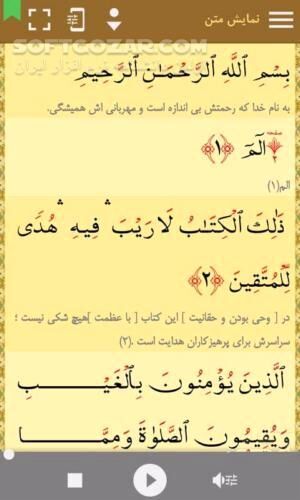 نمایش متن
SOFTGOZAR.COM
بِسْمِ ٱللَّهِ ٱلرَّحْمَـٰنِ ٱلرَّحِيمِ
به نام خدا که رحمتش بی اندازه است و مهربانی اش همیشگی.
صفحه
۲
الٓمٓ ﴿١﴾
الم(۱)
ذَٰلِكَ ٱلْكِتَـٰبُ لَا رَيْبَ ۛ فِيهِ ۛ هُدًى
لِّلْمُتَّقِينَ ﴿٢﴾
در [ وحی بودن و حقانیت ] این کتاب [ با عظمت ]هیچ شکی نیست ؛
سراسرش برای پرهیزکاران هدایت است .(۲)
ٱلَّذِينَ يُؤْمِنُونَ بِٱلْغَيْبِ
وَيُقِيمُونَ ٱلصَّلَوٰةَ وَمِمَّا